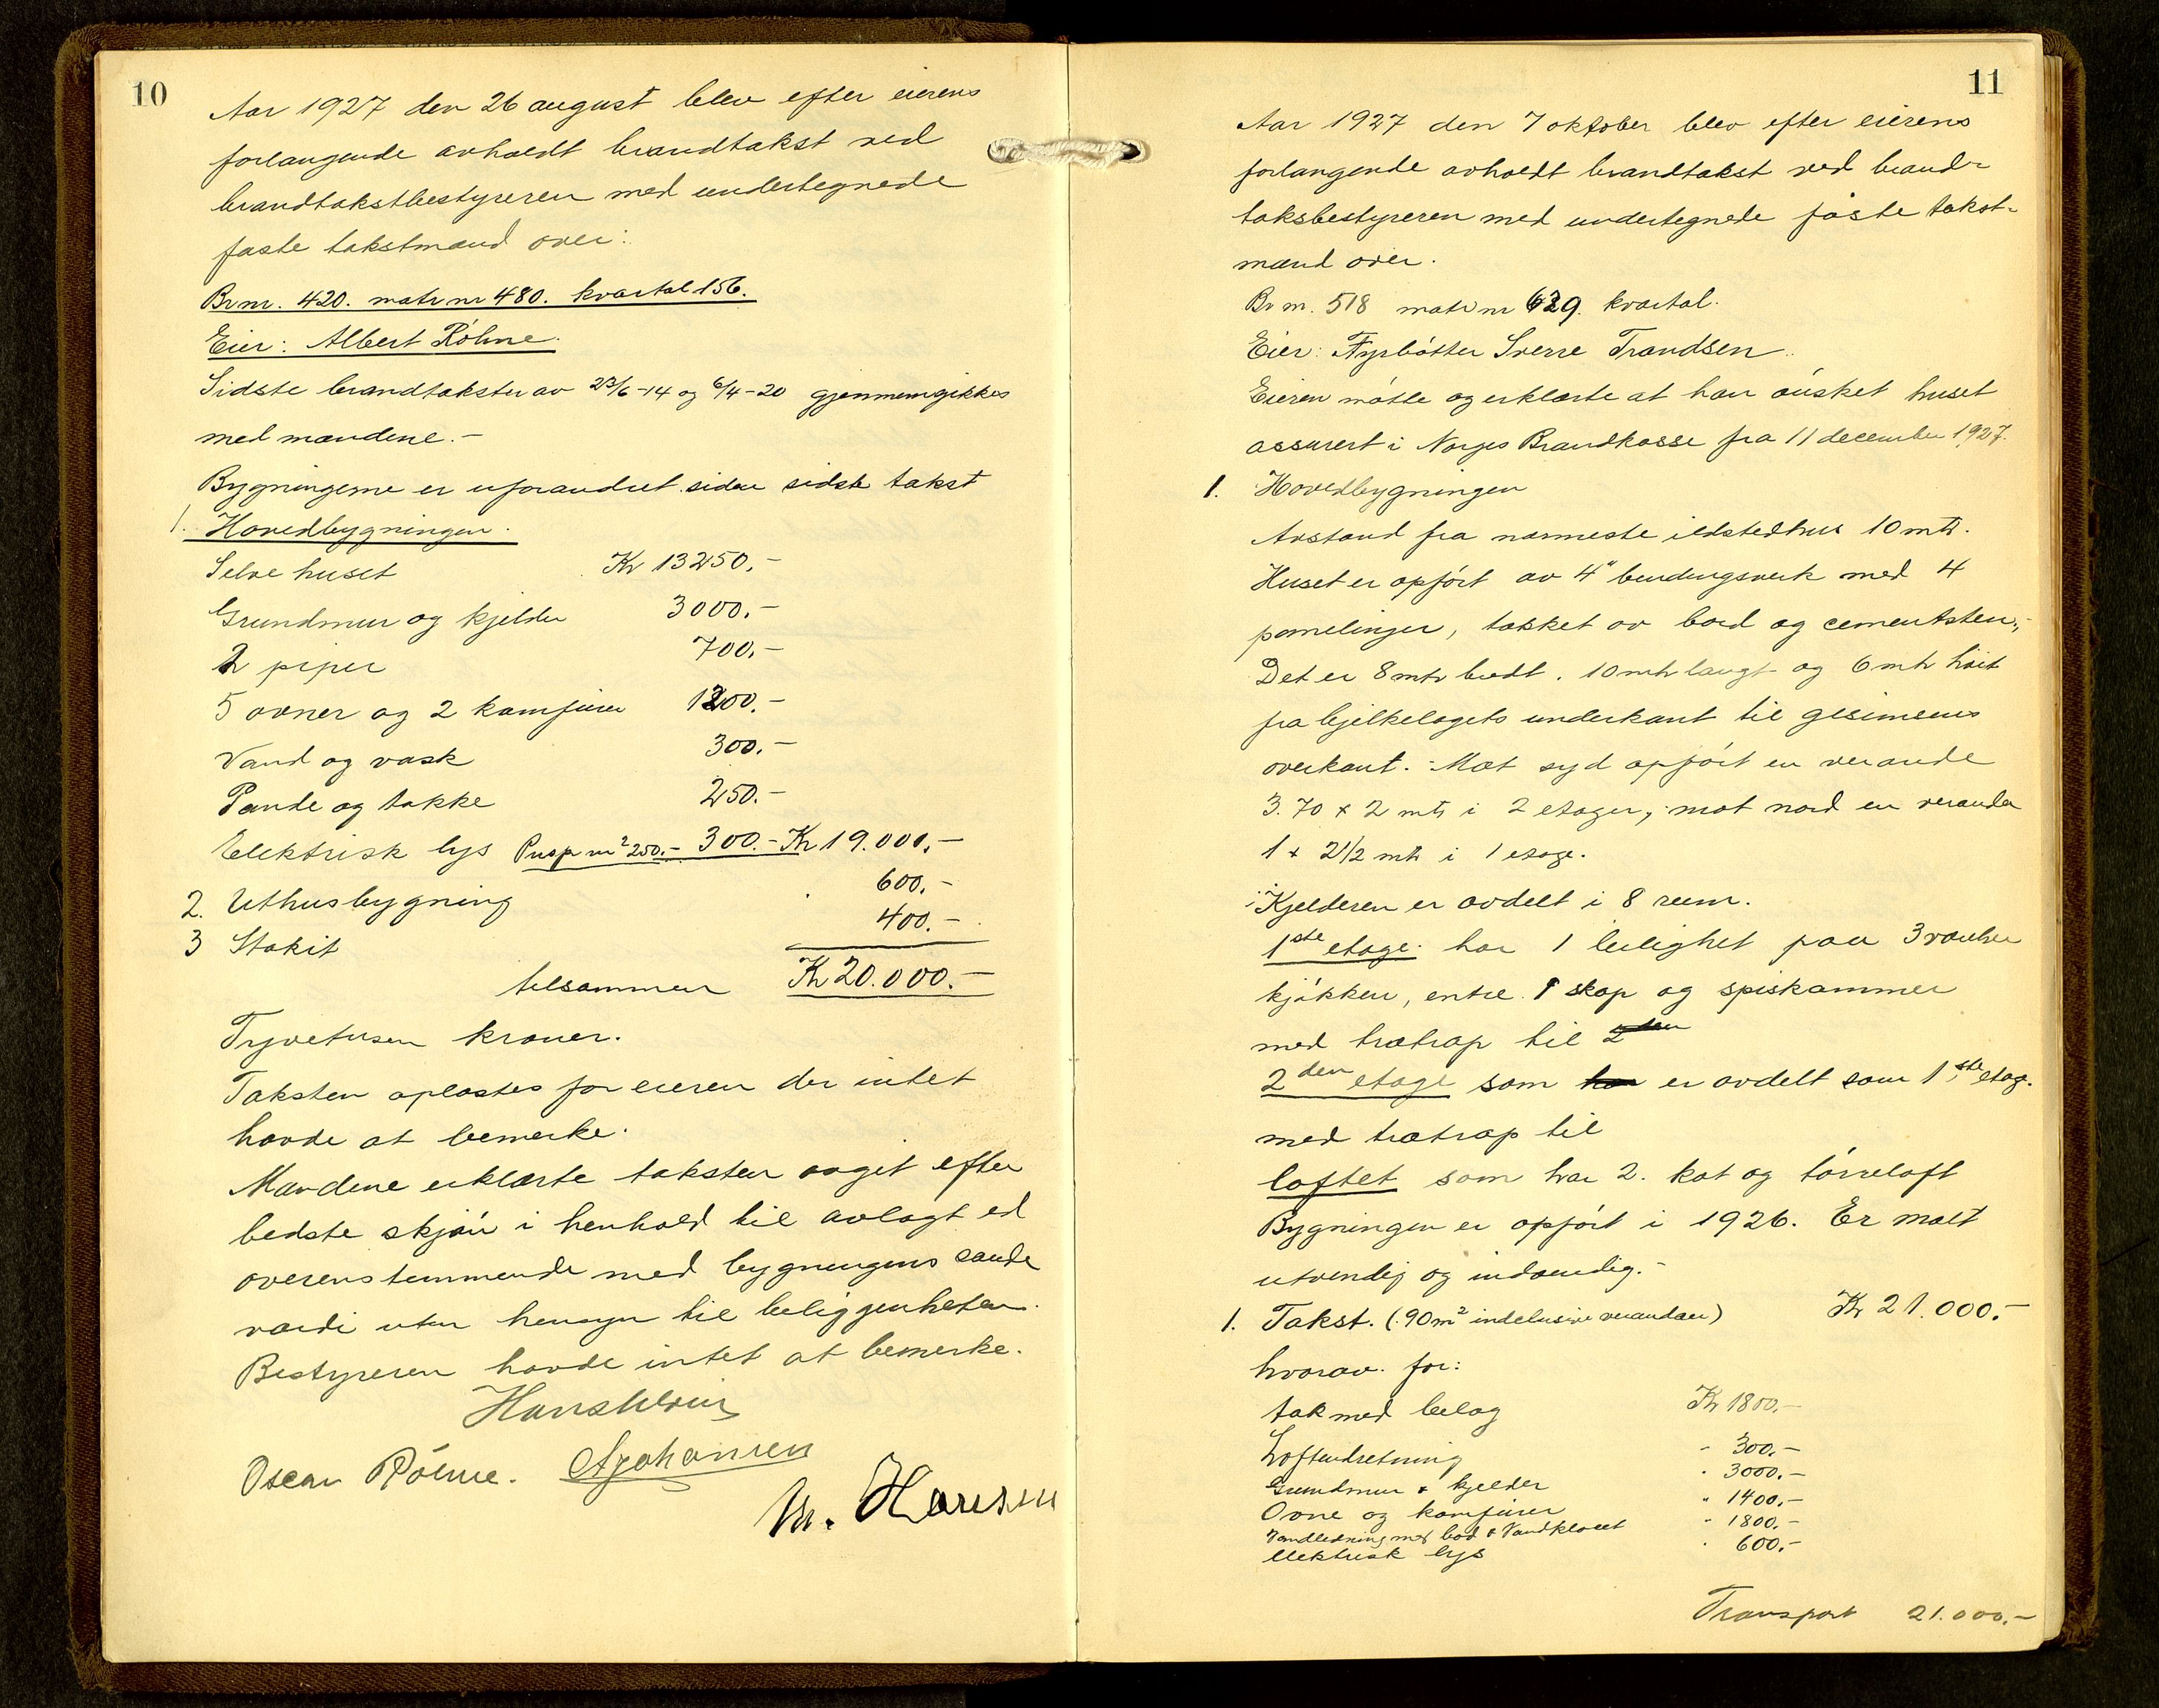 10
Aar 1927 den 26 august blev efter eierens
forlangende avholdt brandtakst ved
brandtakstbestyreren med undertegnede
faste takstmænd over:
Br nr. 420. matr nr 480. kvartal 156.
Eier: Albert Röhne.
Sidste brandtakster av 23/6-14 og 6/4-20 gjennemgikkes
med mændene.-
Bygningerne er uforandret siden sidste takst
1. Hovedbygningen.
Selve huset Kr 13250.-
Grundmur og kjelder 3000.-
2 piper 700.-
5 ovner og 2 komfürer 1200.-
Vand og vask 300.-
Pande og takke 250.-
Elektrisk lys Pr m² 250.- 300.- Kr 19.000.-
2. Uthusbygning 600.-
3 Stakit 400.-
tilsammen Kr 20.000.-
Tyvetusen kroner.
Taksten oplæstes for eieren der intet
hadde at bemerke.
Mændene erklærte taksten avgit efter
bedste skjön i henhold til avlagt ed
overenstemmende med bygningens sande
værdi uten hensyn til beliggenheten.
Bestyreren havde intet at bemerke.
Oscar Röhne. A Johansen
M. Hansen
11
Aar 1927 den 7 oktober blev efter eierens
forlangende avholdt brandtakst ved brand-
taksbestyreren med undertegnede faste takst-
mænd over.
Br nr. 518 matr nr 639. kvartal.
Eier: Fyrbötter Sverre Trandsen.
Eieren mötte og erklærte at han önsket huset
assurert i Norges Brandkasse fra 11 december 1927.
1. Hovedbygningen
Avstand fra nærmeste ildstedhus 10 mtr.
Huset er opfört av 4" bindingsverk med 4
panelinger, tækket av bord og cementsten,-
Det er 8 mtr bredt. 10 mtr langt og 6 mtr höit
fra bjelkelagets underkant til gesimsens
overkant. Mot syd opfört en verande
3.70 x 2 mtr i 2 etager, mot nord en veranda
1 x 2½ mtr i 1 etage.
Kjelderen er avdelt i 8 rum.
1ste etage. har 1 leilighet paa 3 værelser
kjökken, entre. 1 skap og spiskammer
med trætrap til 2den
2den etage som har er avdelt som 1ste etag.
med trætrap til
loftet som har 2. kot og törreloft
Bygningen er opfört i 1926. Er malt
utvendig og indvendig.-
1. Takst. (90 m² indclusive verandaer) Kr 21.000.-
hvorav. for:
tak med belag Kr 1800.-
Loftindretning " 300.-
Grundmur & kjelder " 3000.-
Ovne og komfürer " 1400.-
Vandledning med bad & Vandkloset " 1800.-
Elektrisk lys " 600.-
Transport 21.000.-